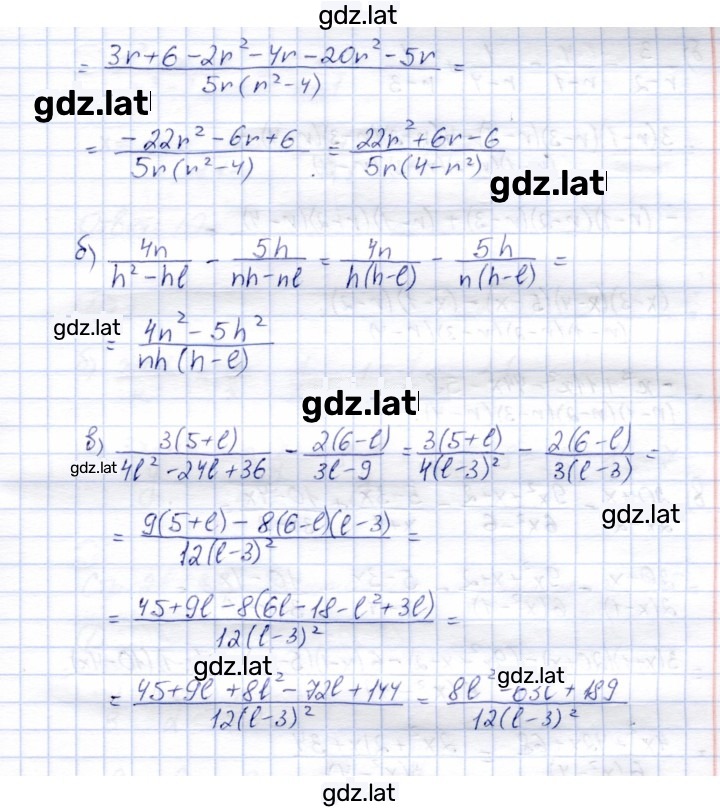 gdz.lat
= (3r+6-2r²-4r-20r²-5r)/(5r(r²-4)) =
gdz.lat
= (-22r²-6r+6)/(5r(r²-4)) = (22r²+6r-6)/(5r(4-r²)).
gdz.lat
б) 4n/(h²-hl) - 5h/(nh-nl) = 4n/(h(h-l)) - 5h/(n(h-l)) =
gdz.lat
= (4n²-5h²)/(nh(h-l))
gdz.lat
в) 3(5+l)/(4l²-24l+36) - 2(6-l)/(3l-9) = 3(5+l)/(4(l-3)²) - 2(6-l)/(3(l-3)) =
gdz.lat
gdz.lat
= (9(5+l)-8(6-l)(l-3))/(12(l-3)²) =
= (45+9l-8(6l-18-l²+3l))/(12(l-3)²) =
gdz.lat
gdz.lat
= (45+9l+8l²-72l+144)/(12(l-3)²) = (8l²-63l+189)/(12(l-3)²)
gdz.lat